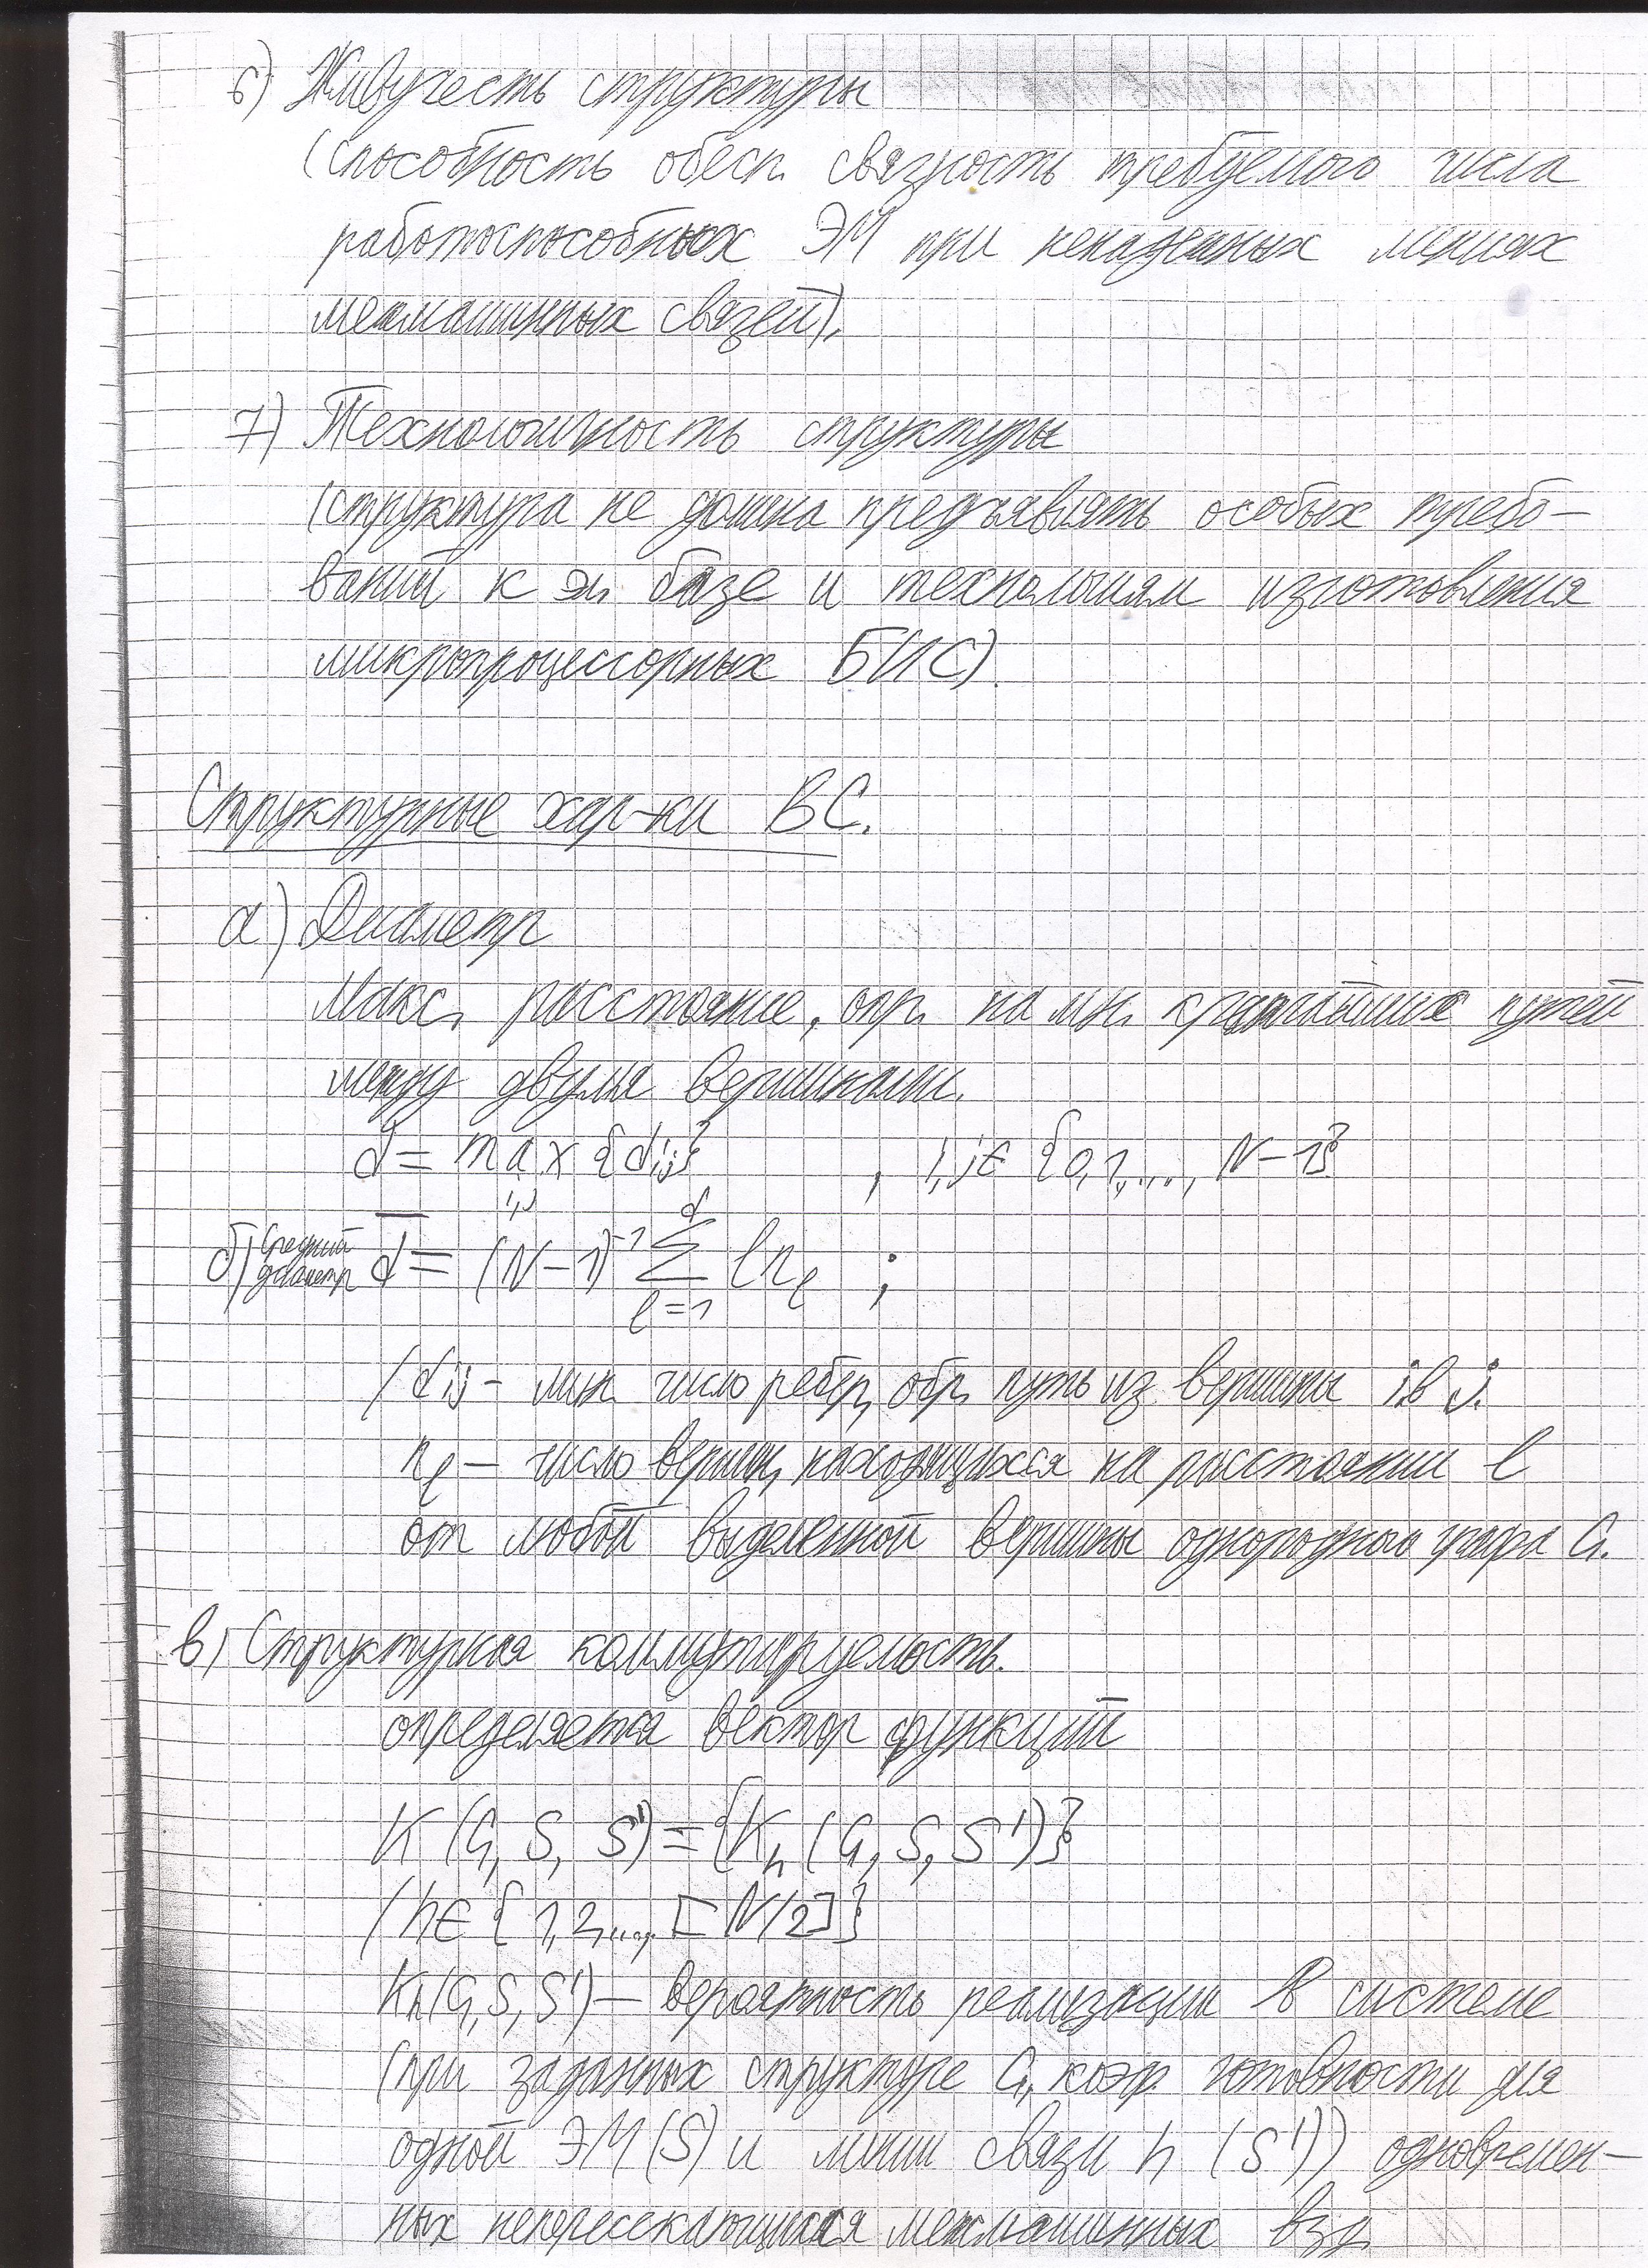 6) Живучесть структуры
(способность обесп. связность требуемого числа
работоспособных ЭМ при ненадежных линиях
межмашинных связей).
7) Технологичность структуры
(структура не должна предъявлять особых требо-
ваний к эл. базе и технологиям изготовления
микропроцессорных БИС)
Структурные хар-ки ВС.
а) Диаметр
Макс. расстояние, опр. на мн. кратчайших путей
между двумя вершинами.
d = max {dij} , i,j ∈ {0,1,..., N-1}
i,j
б) Средний диаметр d̅ = (N-1)⁻¹ Σ l nₗ ;
d
l=1
(dij - мин. число ребер, обр. путь из вершины i в j.
nₗ - число вершин, находящихся на расстоянии l
от любой выделенной вершины однородного графа G.
в) Структурная коммутируемость.
определяется вектор функций
K (G, S, S') = {Kh (G, S, S')}
(h ∈ {1,2,..., [N/2]}
Kh(G,S,S') - вероятность реализации в системе
(при заданных структуре G, коэф. готовности для
одной ЭМ (S) и линии связи h (S')) одновремен-
ных непересекающихся межмашинных вз.